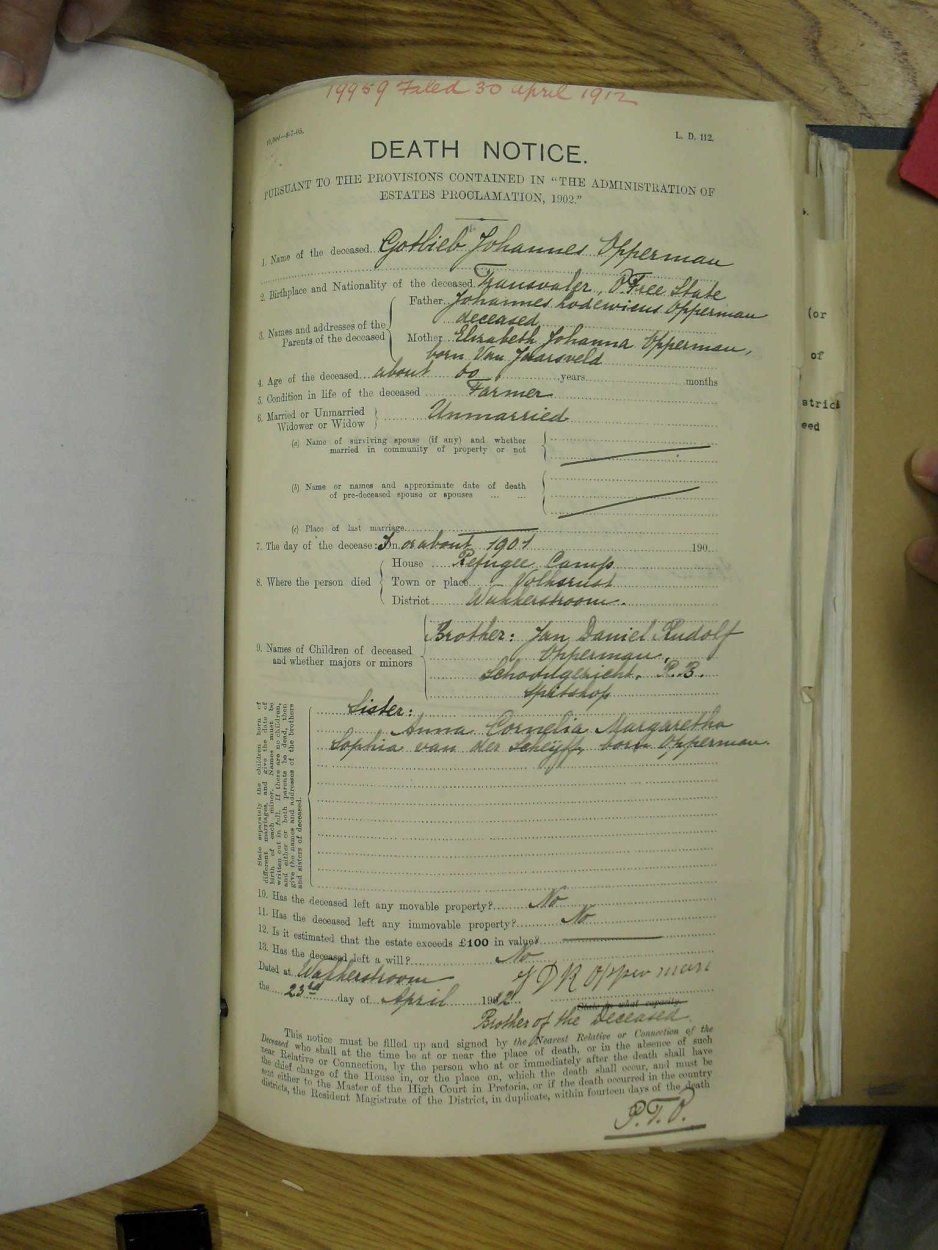 19959 Filed 30 April 1912
L. D. 112.
DEATH NOTICE.
PURSUANT TO THE PROVISIONS CONTAINED IN "THE ADMINISTRATION OF
ESTATES PROCLAMATION, 1902."
1. Name of the deceased Gotlieb Johannes Opperman
2. Birthplace and Nationality of the deceased Transvaler, O Free State
3. Names and addresses of the Parents of the deceased
Father Johannes Lodewicus Opperman
deceased
Mother Elizabeth Johanna Opperman,
born Van Jaarsveld
4. Age of the deceased about 60 years months
5. Condition in life of the deceased Farmer
6. Married or Unmarried Widower or Widow Unmarried
(a) Name of surviving spouse (if any) and whether
married in community of property or not
(b) Name or names and approximate date of death
of pre-deceased spouse or spouses
(c) Place of last marriage
7. The day of the decease: In or about 1901 190
8. Where the person died
House Refugee Camp
Town or place Volksrust
District Wakkerstroom.
9. Names of Children of deceased
and whether majors or minors
Brother: Jan Daniel Rudolf
Opperman,
Schoongezicht, P.B.
Spitskop
State separately the children born of
different marriages, and give the date of
birth of each minor. Names must be
written out in full. If there are no children,
and either or both parents be dead, then
give the names and addresses of the brothers
and sisters of deceased.
Sister:
Anna Cornelia Margaretha
Sophia van der Scheyff, born Opperman.
10. Has the deceased left any movable property? No
11. Has the deceased left any immovable property? No
12. Is it estimated that the estate exceeds £100 in value?
13. Has the deceased left a will? No
Dated at Wakkerstroom
J D R Opperman
the 23rd day of April 1912
State in what capacity.
Brother of the Deceased.
This notice must be filled up and signed by the Nearest Relative or Connection of the
Deceased who shall at the time be at or near the place of death, or in the absence of such
near Relative or Connection, by the person who at or immediately after the death shall have
the chief charge of the House in, or the place on, which the death shall occur, and must be
sent either to the Master of the High Court in Pretoria, or if the death occurred in the country
districts, the Resident Magistrate of the District, in duplicate, within fourteen days of the death
P.T.O.
(or
of
strict
eed